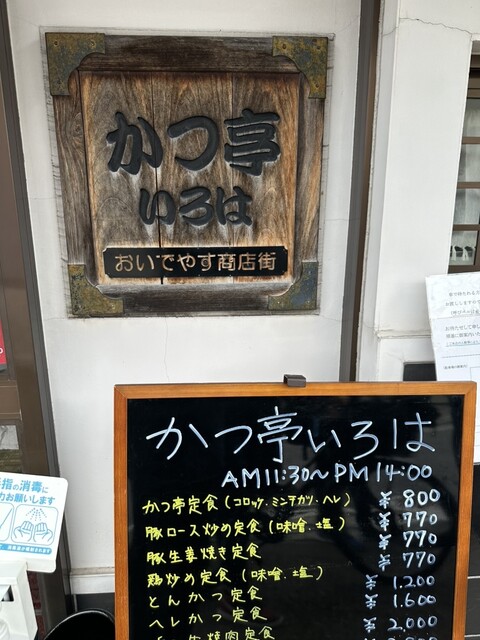 かつ亭
いろは
おいでやす商店街
かつ亭いろは
AM11:30〜PM14:00
かつ亭定食(コロッケ.ミンチカツ.ヘレ) ¥800
豚ロース炒め定食(味噌.塩) ¥770
豚生姜焼き定食 ¥770
鶏炒め定食(味噌.塩) ¥770
とんかつ定食 ¥1.200
ヘレかつ定食 ¥1.600
焼肉定食 ¥2,000
指の消毒に
力お願いします